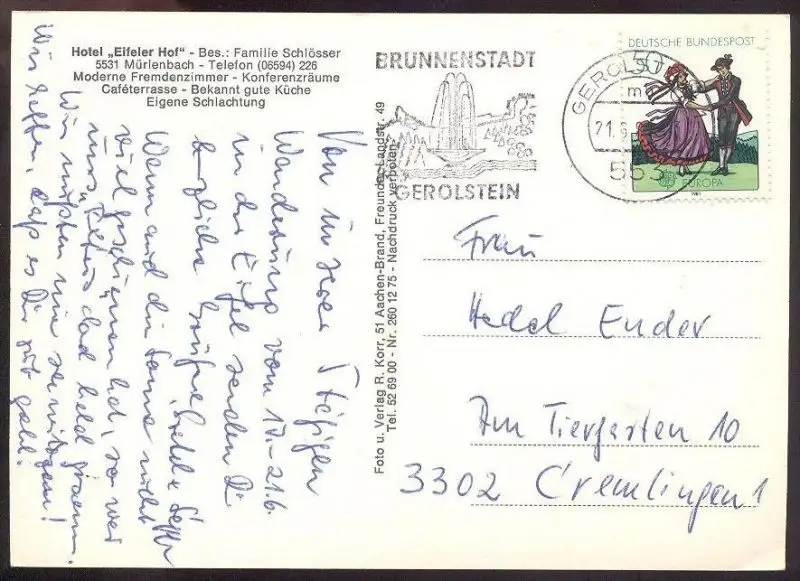 Hotel „Eifeler Hof" - Bes.: Familie Schlösser
5531 Mürlenbach - Telefon (06594) 226
Moderne Fremdenzimmer - Konferenzräume
Caféterrasse - Bekannt gute Küche
Eigene Schlachtung
BRUNNENSTADT
GEROLSTEIN
DEUTSCHE BUNDESPOST
50
EUROPA
GEROLST
m
21.
553
Foto u. Verlag R. Korr, 51 Aachen-Brand, Freunder Landstr. 49
Tel. 52 69 00 - Nr. 260 12 75 - Nachdruck verboten
Von unserer 5tägigen
Wanderung vom 17.-21.6.
in der Eifel senden Dir
herzliche Grüße
Wenn auch die Sonne nicht
viel geschienen hat, so war
Wir müssten nur
Wir hoffen, daß es Dir gut geht.
Frau
Hedel Ender
Am Tiergarten 10
3302 Cremlingen 1